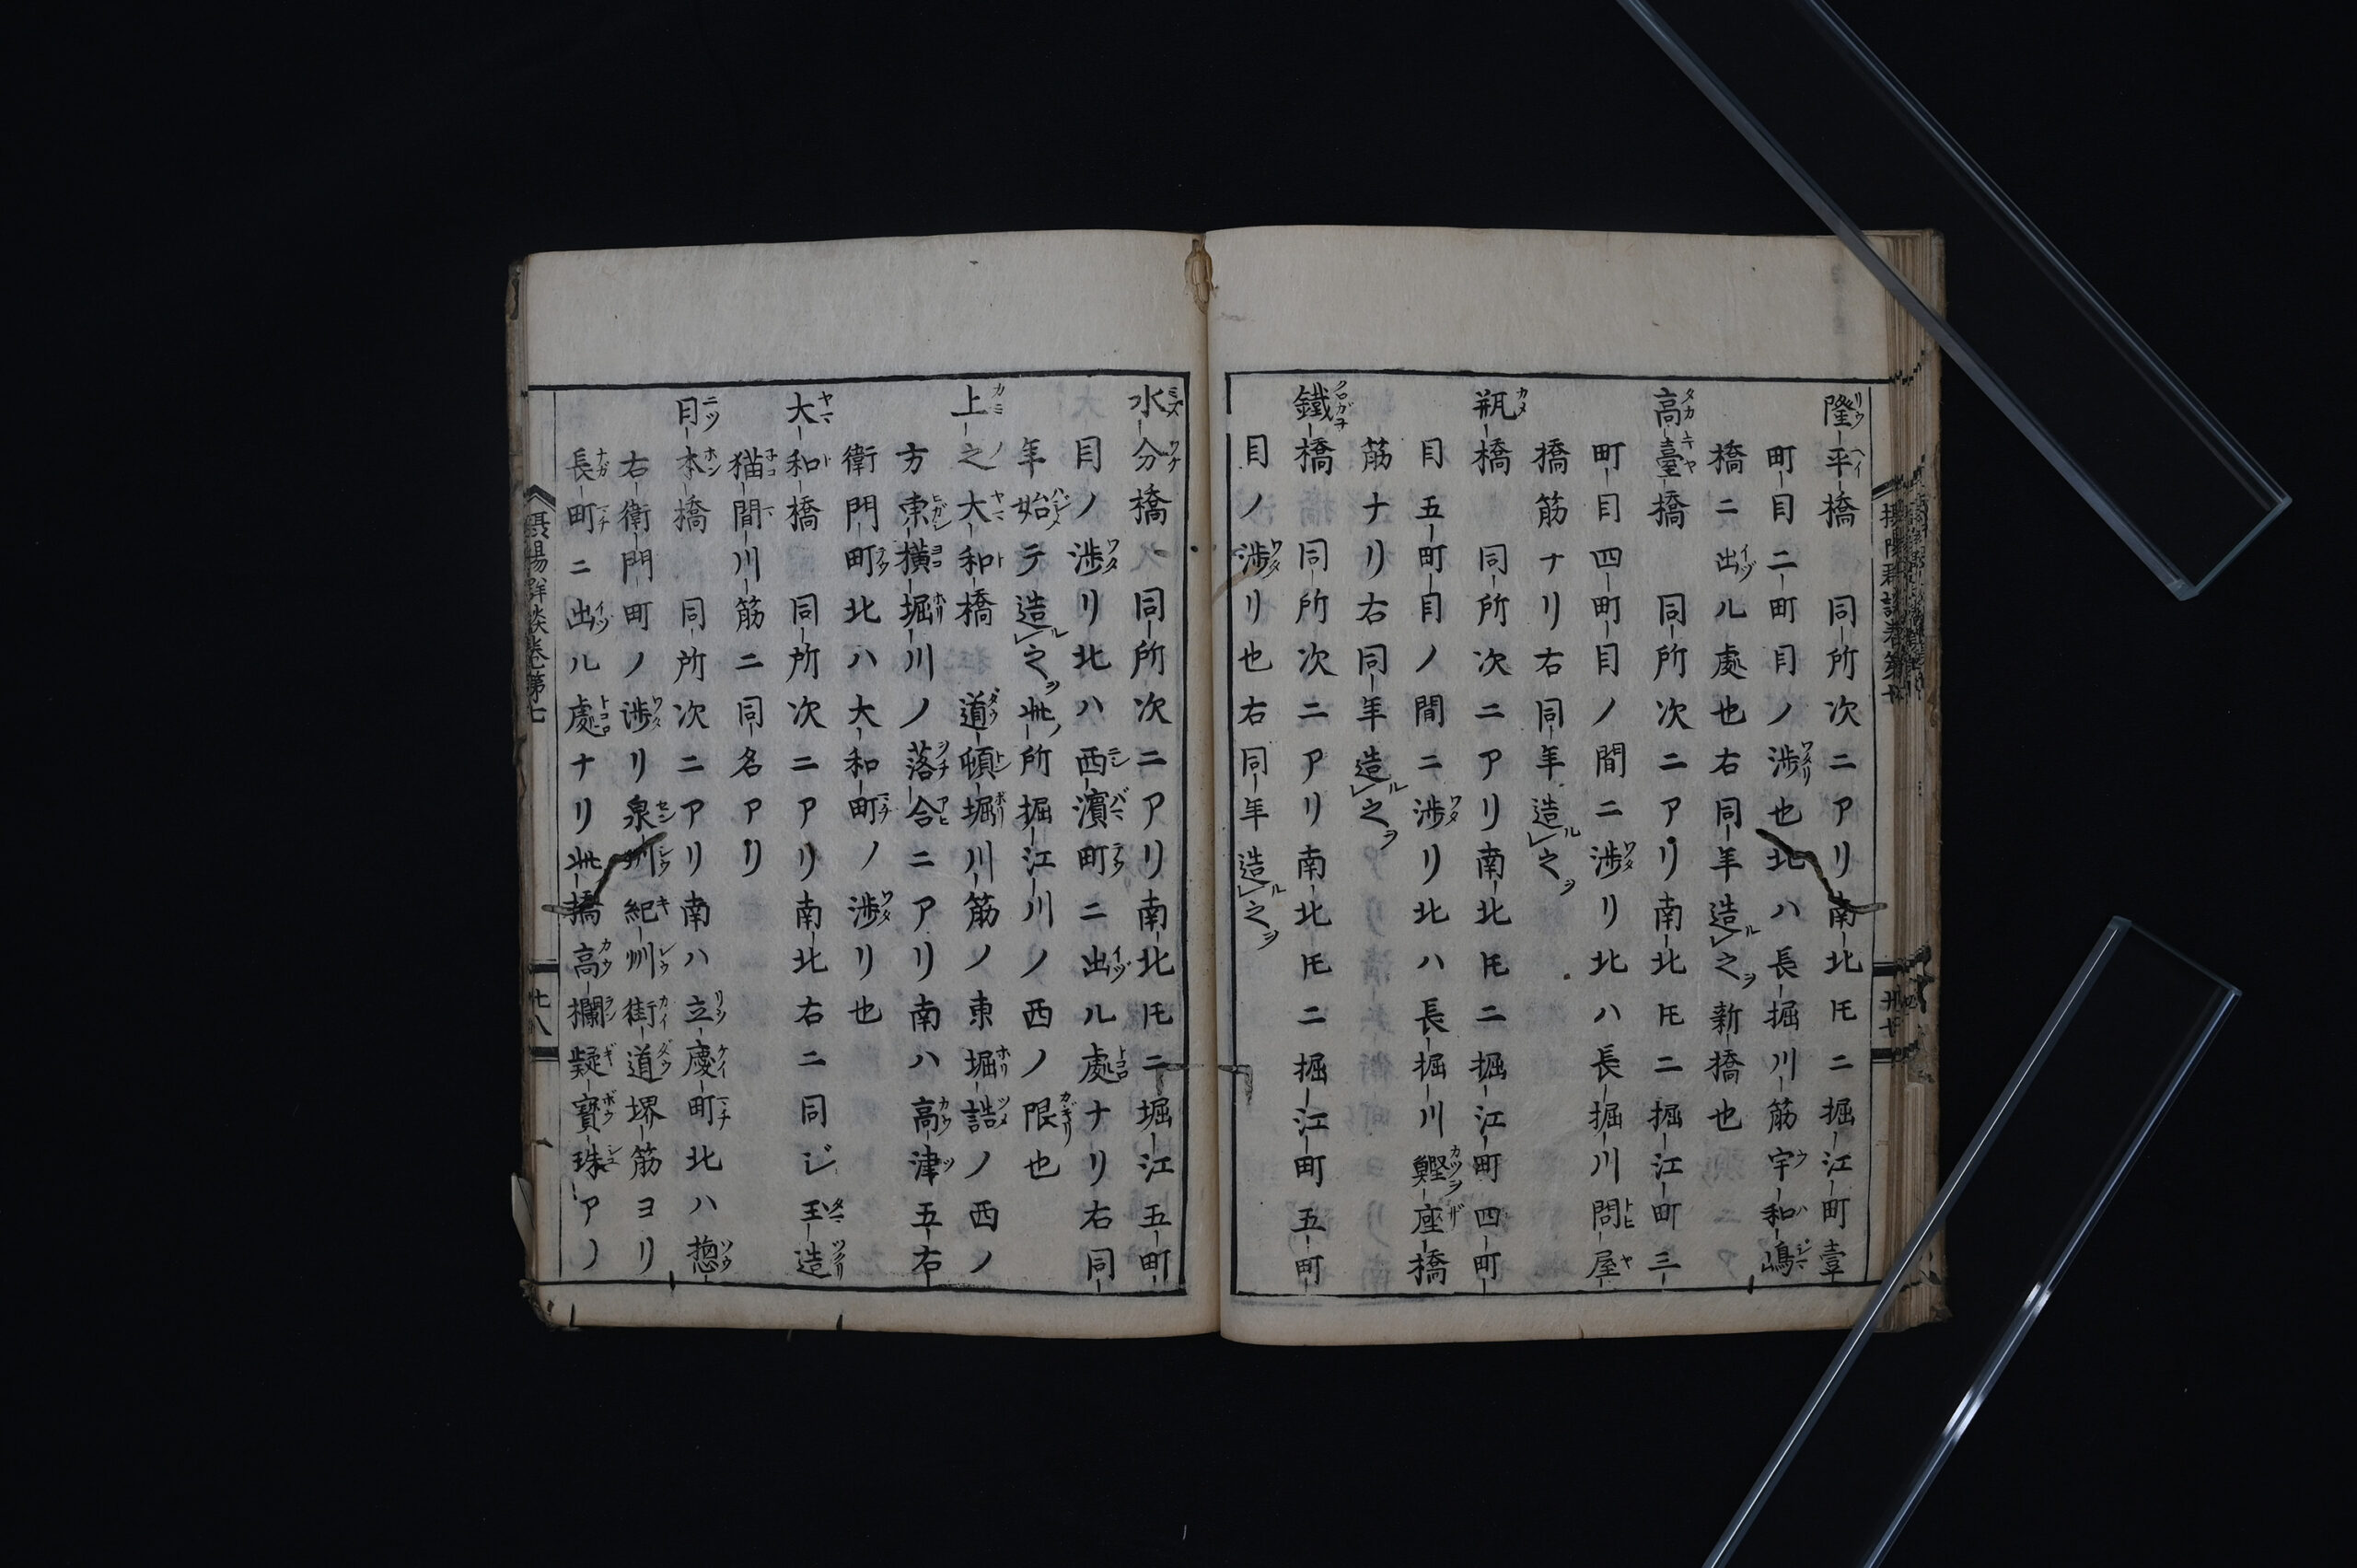 隆平橋 同所次ニアリ南北圧ニ堀江町壹
町目二町目ノ渉也北ハ長堀川筋宇和嶋
橋ニ出ル處也右同年造之新橋也
高臺橋 同所次ニアリ南北圧ニ堀江町三
町目四町目ノ間ニ渉リ北ハ長堀川問屋
橋筋ナリ右同年造之
瓶橋 同所次ニアリ南北圧ニ堀江町四町
目五町目ノ間ニ渉リ北ハ長堀川鰹座橋
筋ナリ右同年造之
鐵橋 同所次ニアリ南北圧ニ堀江町五町
目ノ渉リ也右同年造之
水分橋 同所次ニアリ南北圧ニ堀江五町
目ノ渉リ北ハ西濱町ニ出ル處ナリ右同
年始テ造之此所堀江川ノ西ノ限也
上之大和橋 道頓堀川筋ノ東堀詰ノ西ノ
方東横堀川ノ落合ニアリ南ハ高津五右
衛門町北ハ大和町ノ渉リ也
大和橋 同所次ニアリ南北右ニ同ジ玉造
猫間川筋ニ同名アリ
日本橋 同所次ニアリ南ハ立慶町北ハ惣
右衛門町ノ渉リ泉州紀州街道堺筋ヨリ
長町ニ出ル處ナリ此橋高欄擬寳珠アノ
摂陽群談巻第七